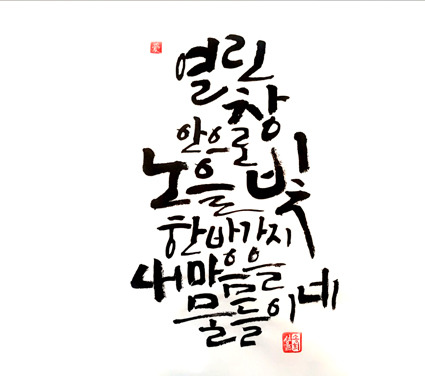 열린
창
안으로
노을빛
한바가지
내마음을
물들이네